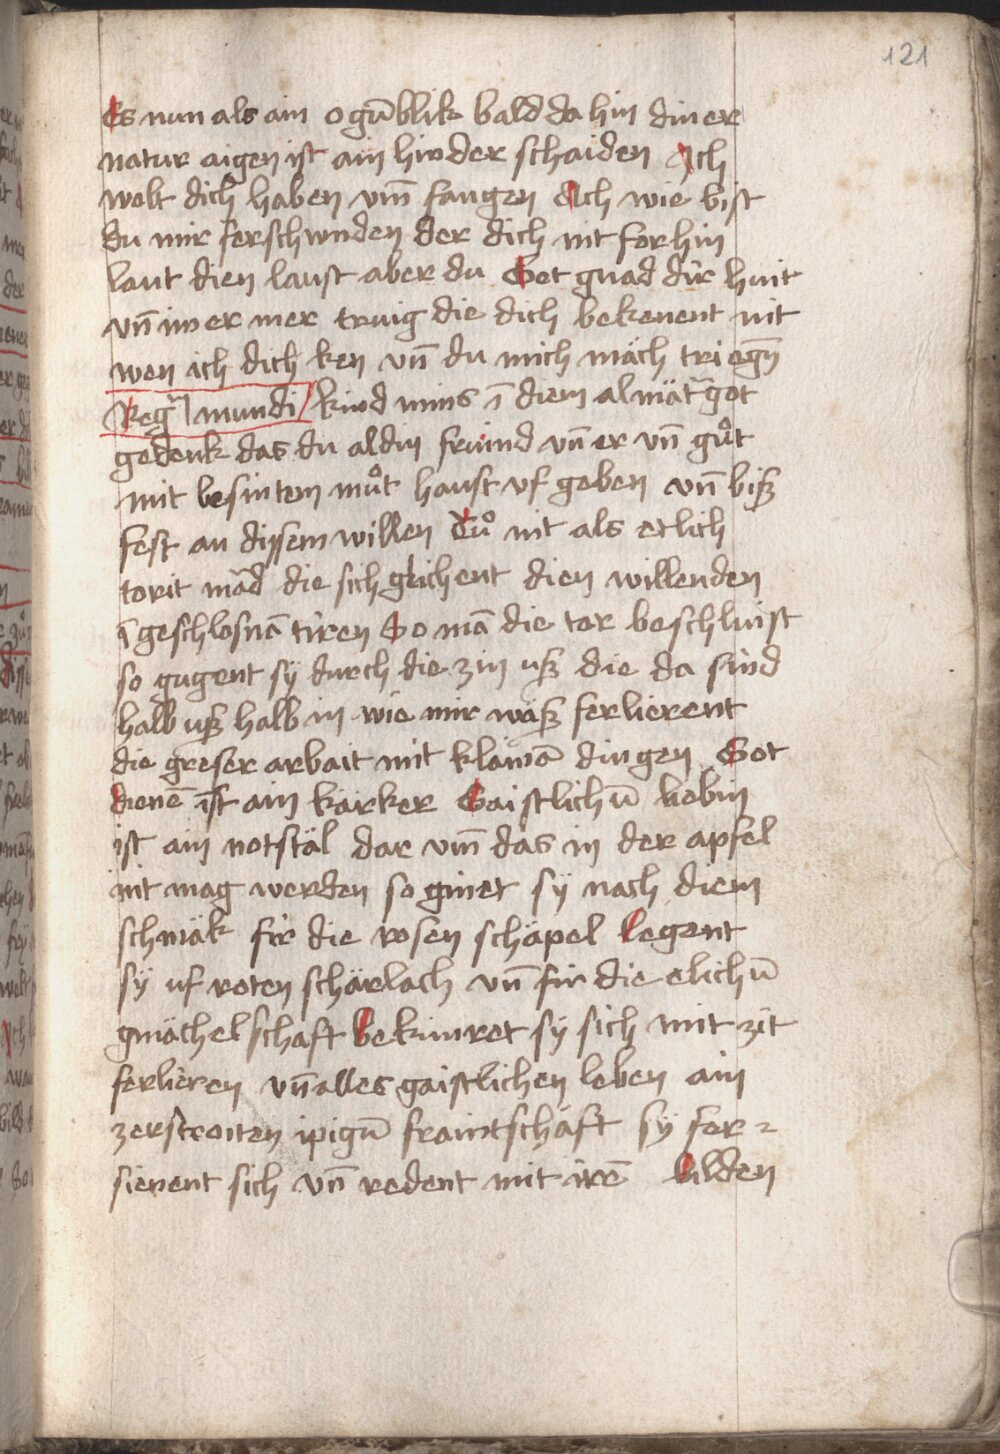 121
Es nun als ain ogūblik bald da hin diner
natur aigen ist ain hinder schaiden Ach
wolt dich haben vm̄ fangen Ach wie bist
du mir ferschwnden der dich nit forhin
laut dien laust aber du Got gnad dir huit
vn̄ imer mer truig die dich bekenent nit
wen ich dich ken vn̄ du mich mäch triegn̄
Regm̄ mundi kind mins ī diem almät̄ got
gedenk das du aldin fruind vn̄ er vn̄ gůt
mit besintem můt haust vf geben vn̄ biß
fest an dissem willen Tů nit als etlich
torit mäd die sich glichent dien willenden
ī geschlosnā tiren So mā die tor beschluist
so gugent sÿ durch die zin uß die da sind
halb uß halb in wie mir wäß ferlierent
die greser arbait mit klainā dingen Got
dienē ist ain kärker Gaistlichū lebin
ist ain notstäl dar vm̄ das in der apfel
nit mag werden so ginet sÿ nach diem
schmäk fir die rosen schäpel legent
sÿ uf roten schärlach vn̄ fir die elichū
gmächelschaft bekimret sÿ sich mit zit
ferlieren vn̄ alles gaistlichen leben ain
zerströiten ipigū fraintschäft sÿ fer-
sienent sich vn̄ redent mit irē bilden